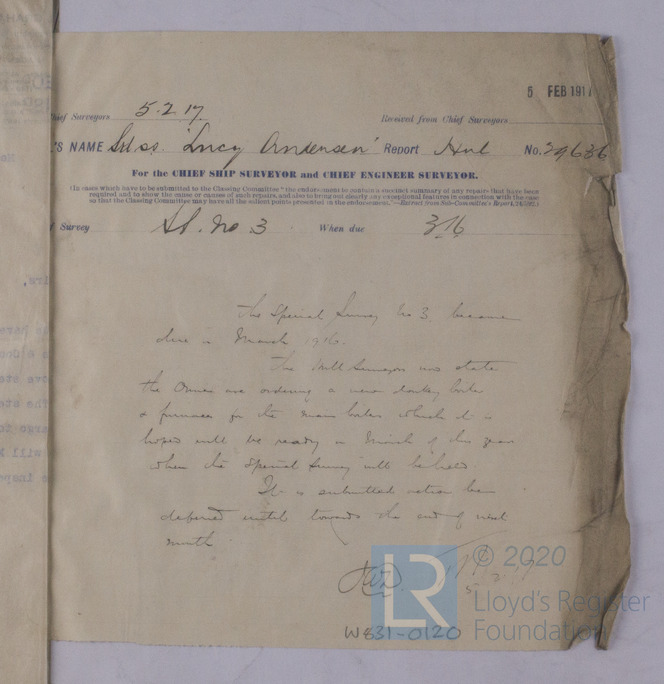 5 FEB 1917
hief Surveyors 5.2.17. Received from Chief Surveyors
'S NAME "Lucy Andersen" Report Hul No. 29636
For the CHIEF SHIP SURVEYOR and CHIEF ENGINEER SURVEYOR.
(In cases which have to be submitted to the Classing Committee "the endorsement to contain a succinct summary of any repairs that have been
required and to show the cause or causes of such repairs, and also to bring out clearly any exceptional features in connection with the case
so that the Classing Committee may have all the salient points presented in the endorsement."—Extract from Sub-Committee's Report,
f Survey SS. No 3 When due 3.16
The Special Survey No 3 became
due in March 1916.
The Hull Surveyors now state
the Owners are ordering a new donkey boiler
& furnaces for the main boiler which it is
hoped will be ready in March of this year
when the Special Survey will be held.
It is submitted action be
deferred until towards the end of next
month.
5.2.17
LR
© 2020
Lloyd's Register
Foundation
W831-0120